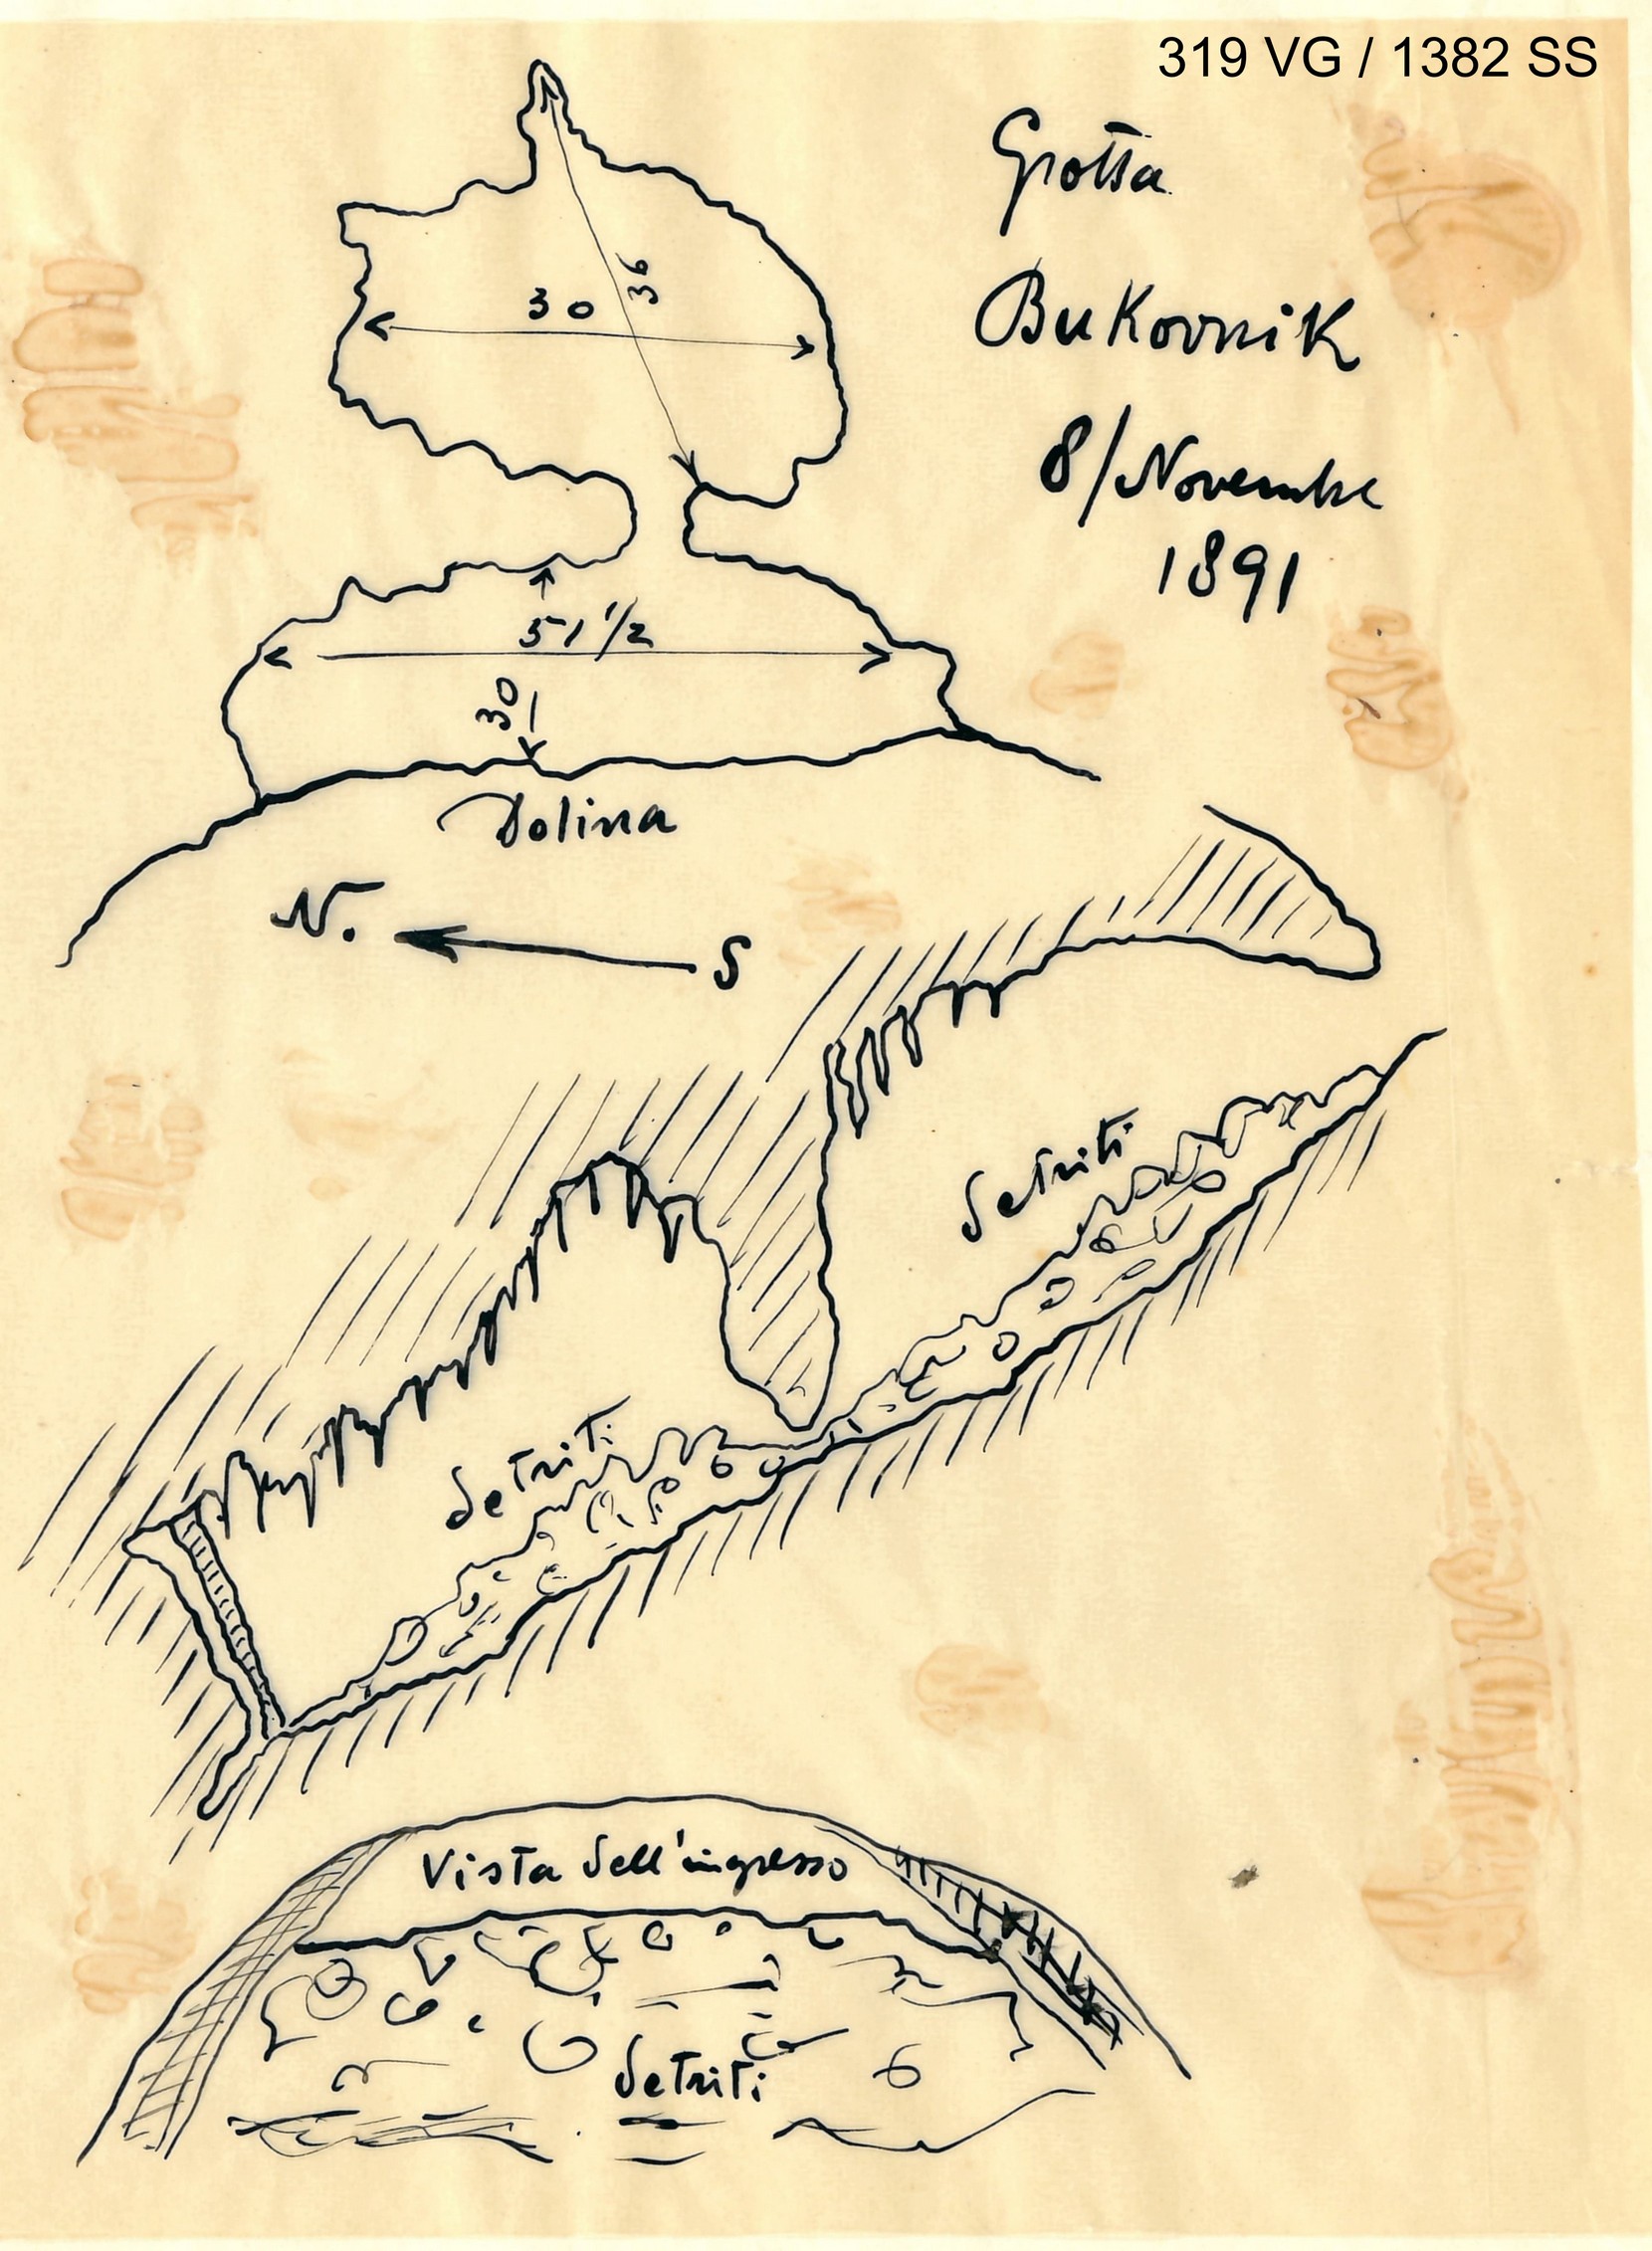 319 VG / 1382 SS
Grotta
Bukovnik
8/Novembre
1891
36
30
51 1/2
30
Dolina
N.
S
detriti
detriti
Vista dell'ingresso
detriti